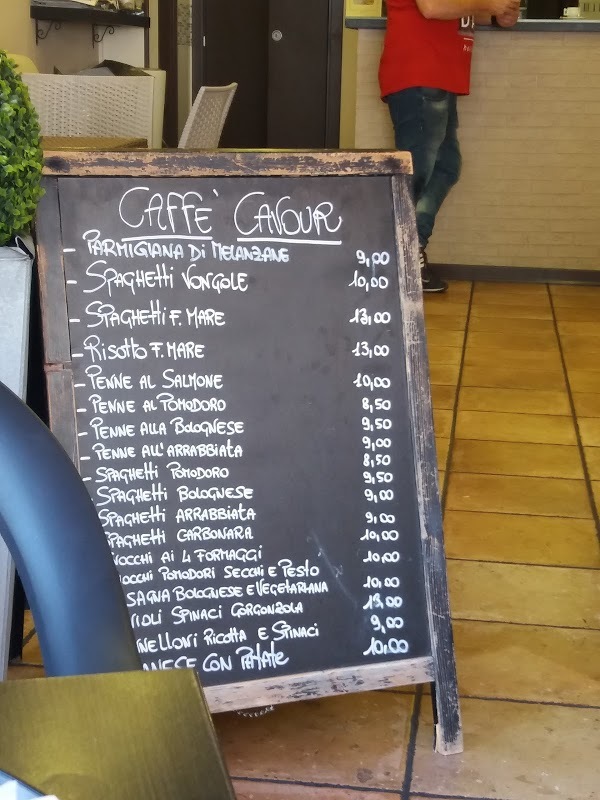 CAFFE' CAVOUR
- PARMIGIANA DI MELANZANE 9,00
- SPAGHETTI VONGOLE 10,00
- SPAGHETTI F. MARE 13,00
- RISOTTO F. MARE 13,00
- PENNE AL SALMONE 10,00
- PENNE AL POMODORO 8,50
- PENNE ALLA BOLOGNESE 9,50
- PENNE ALL'ARRABBIATA 9,00
- SPAGHETTI POMODORO 8,50
SPAGHETTI BOLOGNESE 9,50
SPAGHETTI ARRABBIATA 9,00
SPAGHETTI CARBONARA 9,00
NOCCHI AI 4 FORMAGGI 10,00
OCCHI POMODORI SECCHI E PESTO 10,00
SAGNA BOLOGNESE E VEGETARIANA 10,00
IOLI SPINACI GORGONZOLA 13,00
NELLONI RICOTTA E SPINACI 9,00
ANESE CON PATATE 10,00